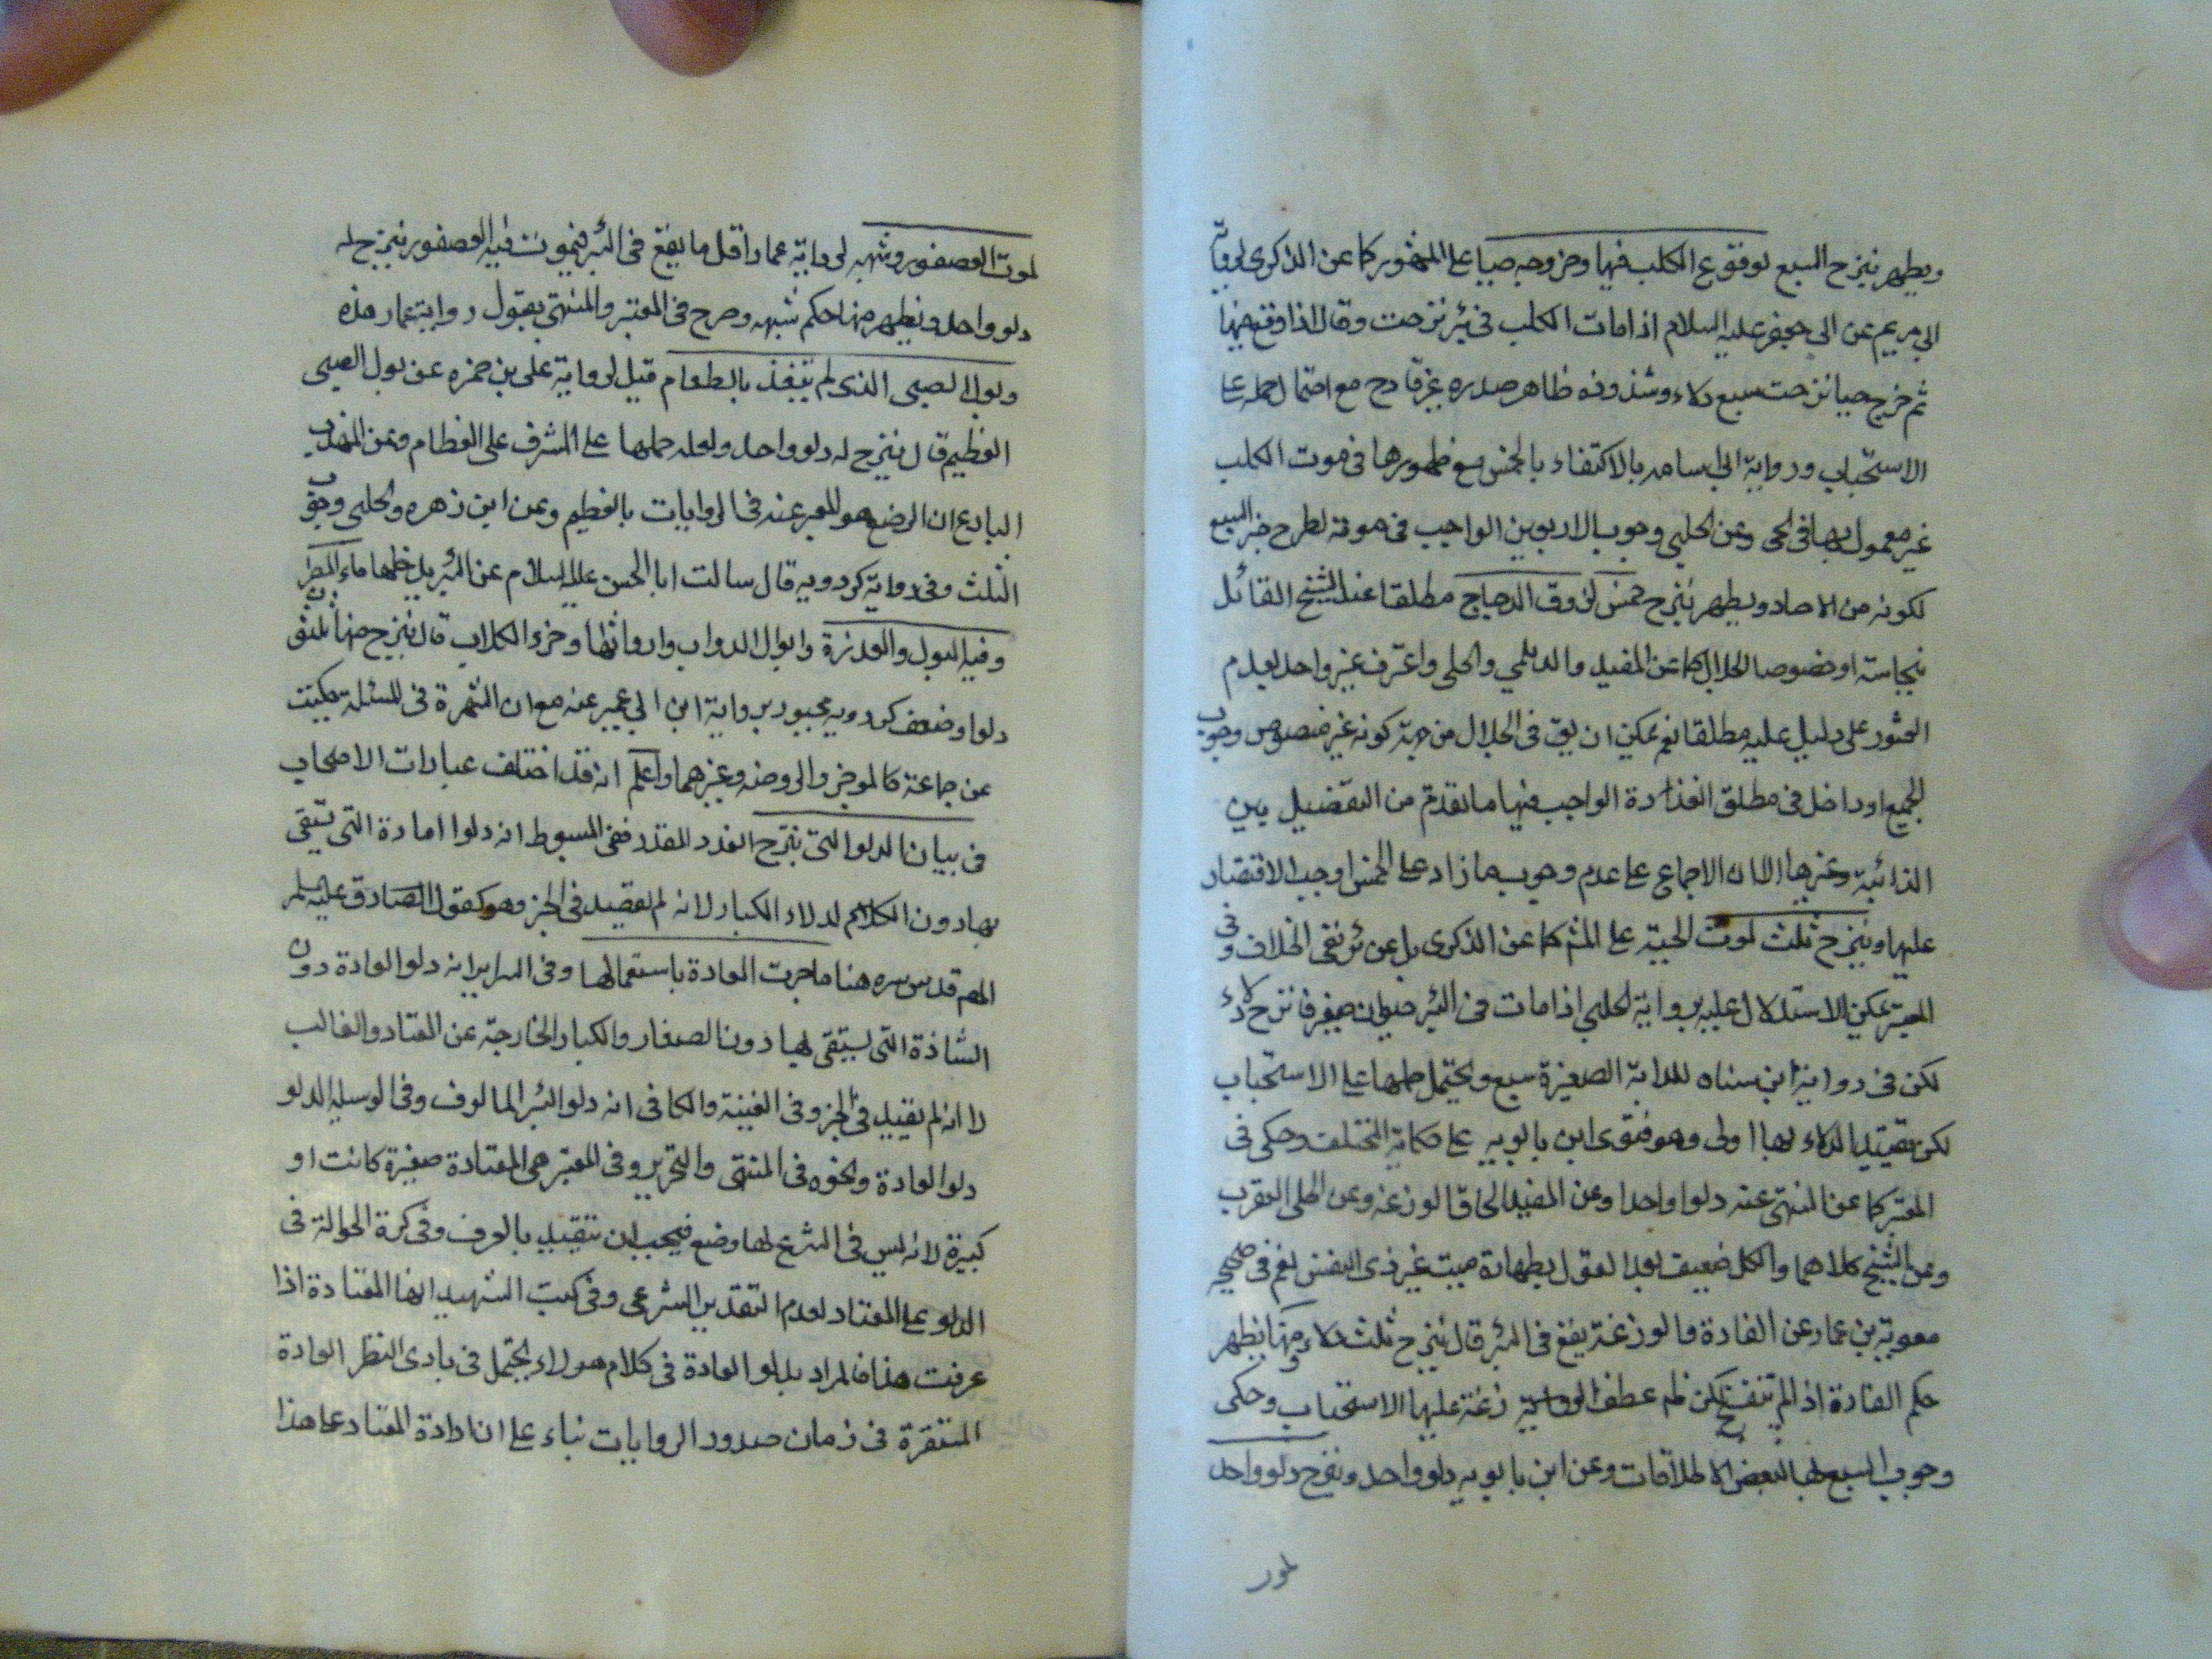 ويطهر بنزح السبع لوقوع الكلب فيها وخروجه حيا على المشهور كما عن الذكرى لرواية
ابي مريم عن ابي جعفر عليه السلام اذا مات الكلب في بئر نزحت وقال اذا وقع فيها
ثم خرج حيا نزحت سبع دلاء وشذوذه ظاهر صدره غير قادح مع احتمال حمله على
الاستحباب ورواية ابي اسامه بالاكتفاء بالخمس مع ظهورها في موت الكلب
غير معمول بها في الحى وعن الحلي وجوب الاربعين الواجب في موته لطرح خبر السبع
لكونه من الاحاد ويطهر بنزح خمس لذرق الدجاج مطلقا عند الشيخ القائل
بنجاسته او خصوصا الجلال كما عن المفيد والديلمي والحلي واعترف غير واحد بعدم
العثور على دليل عليه مطلقا نعم يمكن ان يق في الجلال من جهة كونه غير منصوص وجوب
الجميع او داخل في مطلق العذرة الواجب فيها ما تقدم من التفضيل بين
الذائبة وغيرها الا ان الاجماع على عدم وجوب ما زاد على الخمس اوجب الاقتصار
عليها وينزح ثلث لموت الحية على المش كما عن الذكرى بل عن ئر نفى الخلاف وفي
المعتبر يمكن الاستدلال عليه برواية الحلبي اذا مات في البئر حيوان صغير فانزح دلاء
لكن في رواية ابن سنان للدابة الصغيرة سبع ويحتمل حملها على الاستحباب
لكن تقييد الدلاء بها اولى وهو فتوى ابن بابويه على حكاية المختلف وحكى في
المعتبر كما عن المنتهى عنه دلوا واحدا وعن المفيد الحاق الوزغة وعن الحلي العقرب
وعن الشيخ كلاهما والكل ضعيف بعد القول بطهارة ميت غير ذي النفس نعم في صحيحة
معوية بن عمار عن الفارة والوزغة يقع في البئر قال ينزح ثلث دلاء ومنها يظهر
حكم الفارة اذا لم تنفسخ لكن عطف الوزغة عليها الاستحباب وحكى
وجوب السبع لها لبعض الاطلاقات وعن ابن بابويه دلو واحد وينزح دلو واحد
لموت
لموت العصفور وشبهه لرواية عمار اقل ما يقع في البئر فيموت فيه العصفور ينزح له
دلو واحد ويظهر منها حكم شبهه وصرح في المعتبر والمنتهى بقبول رواية عمار هذه
وبول الصبي الذى لم يتغذ بالطعام قيل لرواية علي بن حمزه عن بول الصبى
الفطيم قال ينزح له دلو واحد ولعله حملها على المشرف على الفطام وعن المهذب
البارع ان الرضيع هو المعبر عنه في الروايات بالفطيم وعن ابن زهره والحلبي وجوب
الثلث وفي رواية كردويه قال سالت ابا الحسن عليه السلام عن البئر يدخلها ماء المطر
وفيه البول والعذرة وابوال الدواب وارواثها وخرء الكلاب قال ينزح منها ثلثون
دلوا وضعف كردويه مجبور برواية ابن ابي عمير عنه مع ان الشهرة في المسئلة حكيت
عن جماعة كالموجز والروضه وغيرهما واعلم انه قد اختلف عبارات الاصحاب
في بيان الدلو التي ينزح العدد المقدر ففي المبسوط انه دلوا العادة التي يستقى
بها دون الكلام لدلاء الكبار لانه لم يقصد في الخبر وهو كقول الصادق عليه السلام
المص قدس سره هنا ما جرت العادة باستعمالها وفي السرائر انه دلو العادة دون
الشاذة التي يستقى بها دون الصغار والكبار الخارجة عن المعتاد والغالب
لا انه لم يقيد في الخبر وفي الغنية والكافى انه دلو البئر المالوف وفي الوسيلة الدلو
دلو العادة ونحوه في المنتهى والتحرير وفي المعتبر هى المعتادة صغيرة كانت او
كبيرة لانه ليس في الشرع لها وضع فيجب ان تتقيد بالعرف وفي كرة الحوالة في
الدلو على المعتاد لعدم التقدير الشرعى وفي كتب الشهيد انها المعتادة اذا
عرفت هذا فالمراد بدلو العادة في كلام هولاء يحتمل في بادى النظر العادة
المستقرة في زمان صدور الروايات بناء على ان ارادة المعتاد على هذا